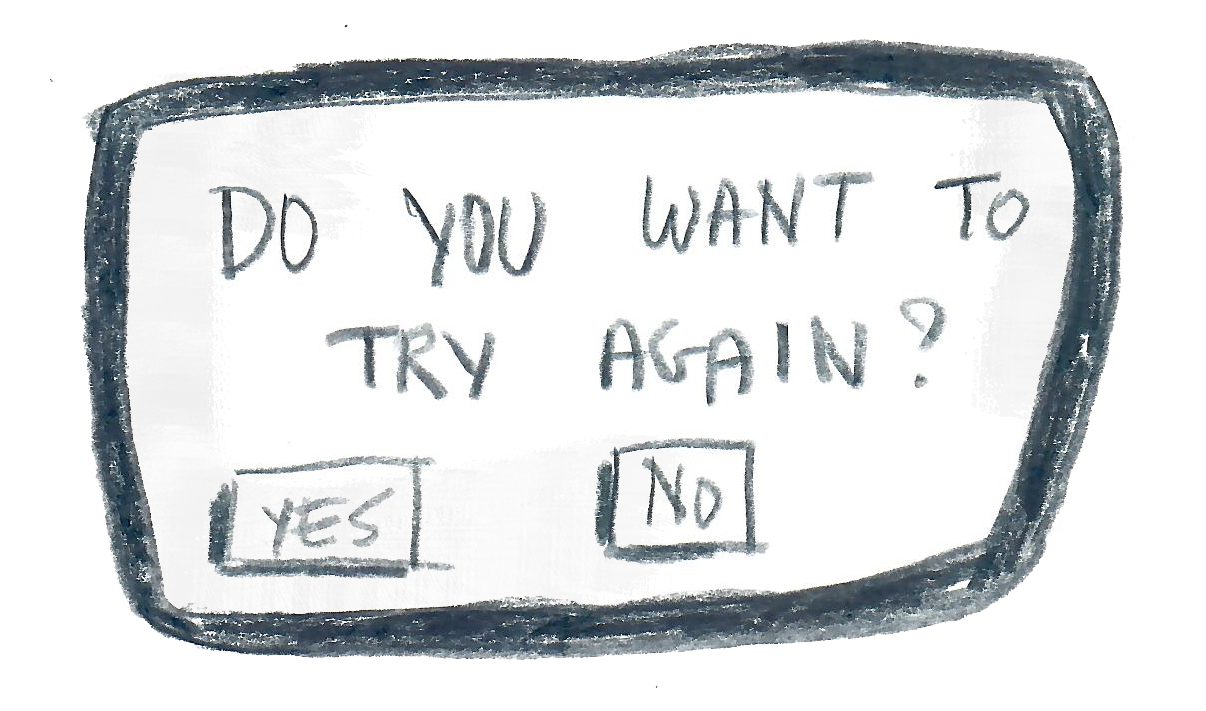 DO YOU WANT TO
TRY AGAIN?
YES NO